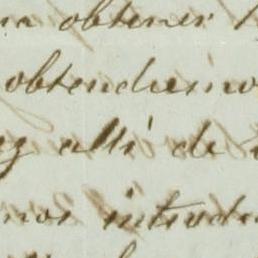 obtener
obtendremo
alli de
nos introdu